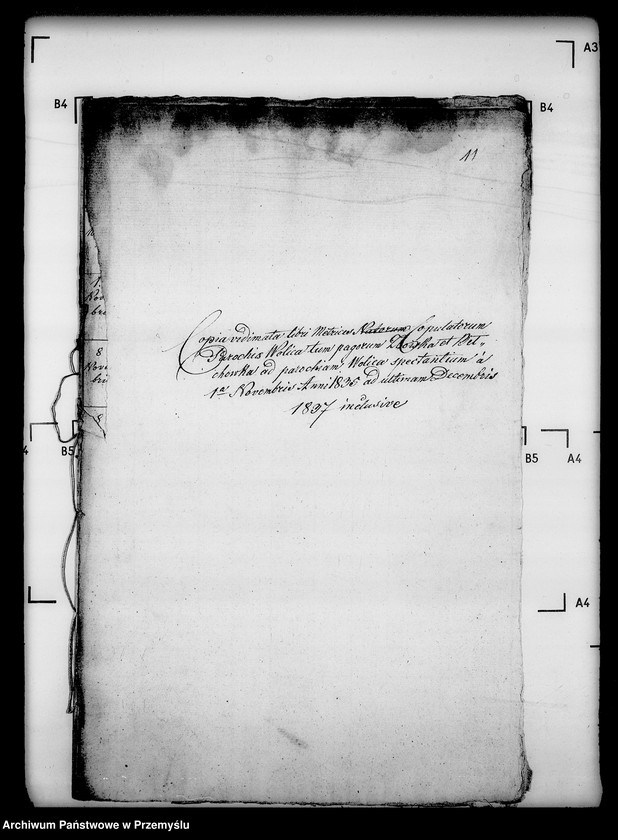 A3
B4
B4
11
8
8
Copia vidimata libri Metrices Natorum Copulatorum
Parochis Wolica tum pagorum et Pet-
chowka ad parochiam Wolica spectantium à
1ª Novembris Anni 1836 ad ultimam Decembris
1837 inclusive
4
B5
B5
A4
A4
Archiwum Państwowe w Przemyślu